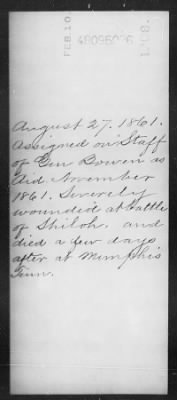 FEB. 10
1888.
August 27. 1861.
Assigned on Staff
of Gen Bowen as
Aid November
1861. Severely
wounded at battle
of Shiloh. and
died a few days
after at Memphis
Tenn.